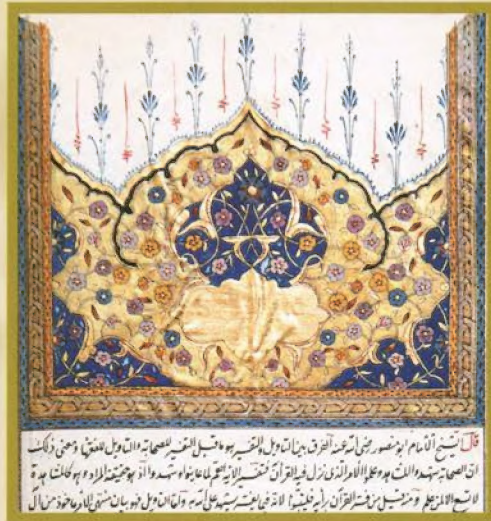 قال الشيخ الامام ابو منصور رضى الله عنه الفرق بين التاويل والتفسير هو ما قيل التفسير للصحابة والتاويل للفقهاء ومعنى ذلك
ان الصحابة شهدوا المشاهد وعلموا الامر الذى نزل فيه القرآن فتفسير الاية اهم لما عاينوا وشهدوا اذ هو حقيقة المراد وهو كالمشاهدة
لا تسمح الا لمن علم ومنه قيل من فسر القرآن برأيه فليتبوأ لانه فيما يفسر يشهد على الله به واما التاويل فهو بيان منتهى الامر ماخوذ من ال